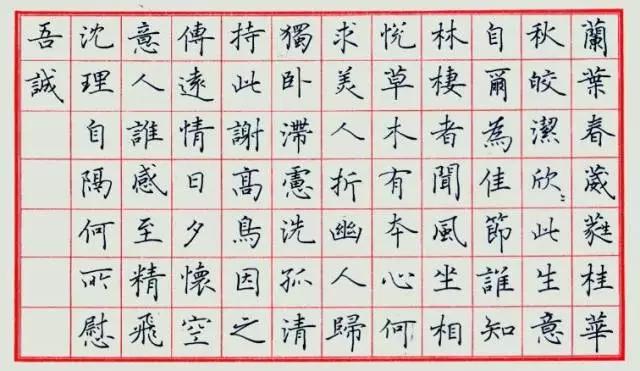 蘭葉春葳蕤桂華
秋皎潔欣〻此生意
自爾為佳節誰知
林棲者聞風坐相
悅草木有本心何
求美人折幽人歸
獨卧滯慮洗孤清
持此謝髙鳥因之
傳遠情日夕懷空
意人誰感至精飛
沈理自隔何所慰
吾誠